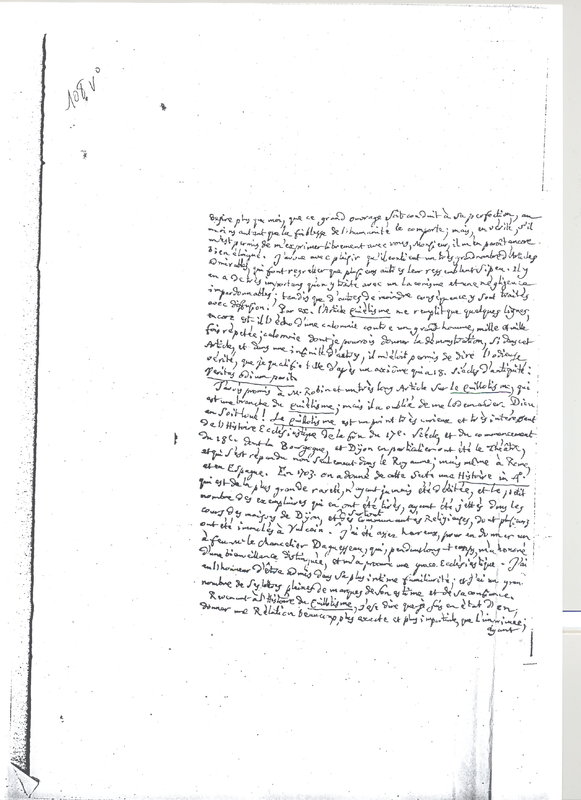 108. v°
desire plus que moi, que ce grand ouvrage soit conduit à sa perfection, au
moins autant que la foiblesse de l'humanité le comporte; mais, en vérité, s'il
m'est permis de m'exprimer librement avec vous, Monsieur, il m'en paroît encore
bien éloigné. J'avoue avec plaisir qu'il contient un très grand nombre d'Articles
admirables, qui font regreter que plusieurs autres leur ressemblent si peu. Il y
en a de très importans qu'on y traite avec un laconisme et une négligence
impardonnables; tandis que d'autres de moindre conséquence y sont traités
avec diffusion. Par ex. l'Article quiétisme ne remplit que quelques lignes;
encore est-il l'écho d'une calomnie contre un grand homme, mille et mille
fois répétée; calomnie dont je pourrois donner la démonstration, si dans cet
Article, et dans une infinité d'autres, il m'étoit permis de dire l'odieuse
vérité, que je qualifie telle d'après un axiôme qui a 18. siècles d'antiquité:
Veritas odium parit.
J'avois promis à M. Robin et un très long Article sur le quillotisme, qui
est une branche du quiétisme; mais il a oublié de me le demander. Dieu
en soit loué! Le quillotisme est un point très curieux et très intéressant
de l'Histoire Ecclésiastique de la fin du 17e. Siècle, et du commencement
du 18e. dont la Bourgogne, et Dijon en particulier ont été le Théâtre,
et qui s'est répandu non seulement dans le Royaume; mais même à Rome,
et en Espagne. En 1703. on a donné de cette Secte une Histoire in 4°.
qui est de la plus grande rareté, n'ayant jamais été débitée, et le petit
nombre des exemplaires qui en ont été tirés, ayant été jettés dans les
cours des maisons de Dijon, et surtout des Communautés Religieuses, dont plusieurs
ont été immolés à Vulcain. J'ai été assez heureux, pour en donner un
à feu M. le Chancelier Daguesseau, qui, pendant longtemps, m'a honoré
d'une bienveillance distinguée, et m'a procuré une grace Ecclésiastique. J'ai
eu l'honneur d'être admis dans sa plus intime familiarité; et j'ai un grand
nombre de ses lettres pleines de marques de son estime et de sa confiance.
Revenant à l'Histoire du quillotisme, j'ose dire que je suis en état d'en
donner une Rélation beaucoup plus exacte et plus impartiale, que l'imprimée;
ayant